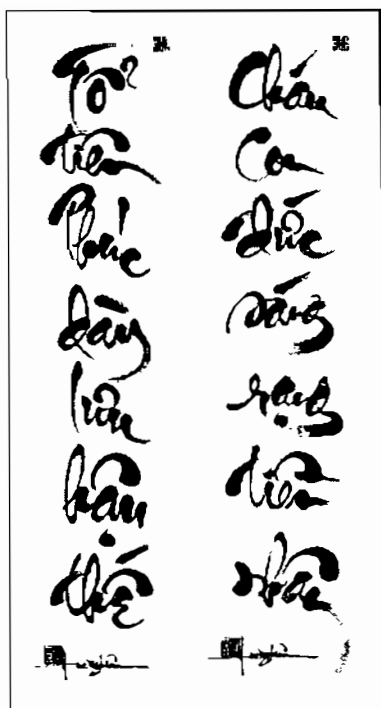 Tổ
tiên
Phúc
dày
lưu
hậu
thế
Cháu
Con
đức
sáng
rạng
tiền
nhân